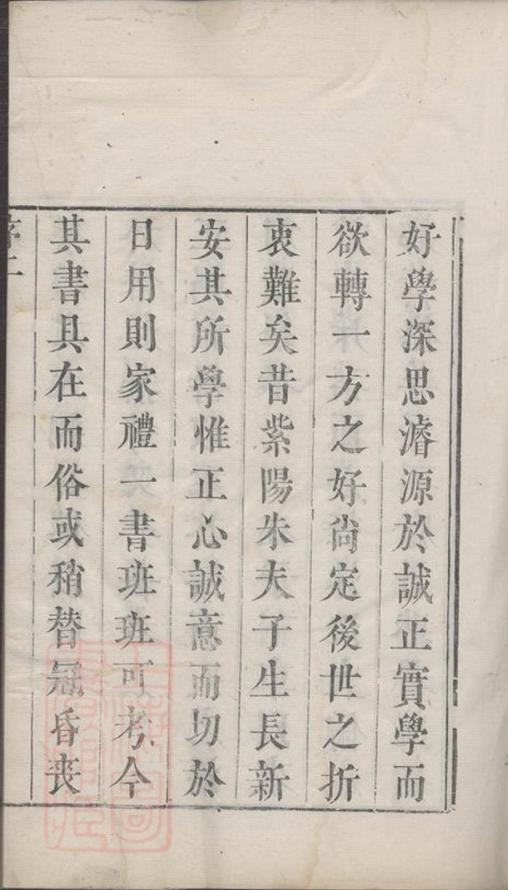 好學深思濬源於誠正實學而
欲轉一方之好尚定後世之折
衷難矣昔紫陽朱夫子生長新
安其所學惟正心誠意而切於
日用則家禮一書班班可考今
其書具在而俗或稍替冠昏喪